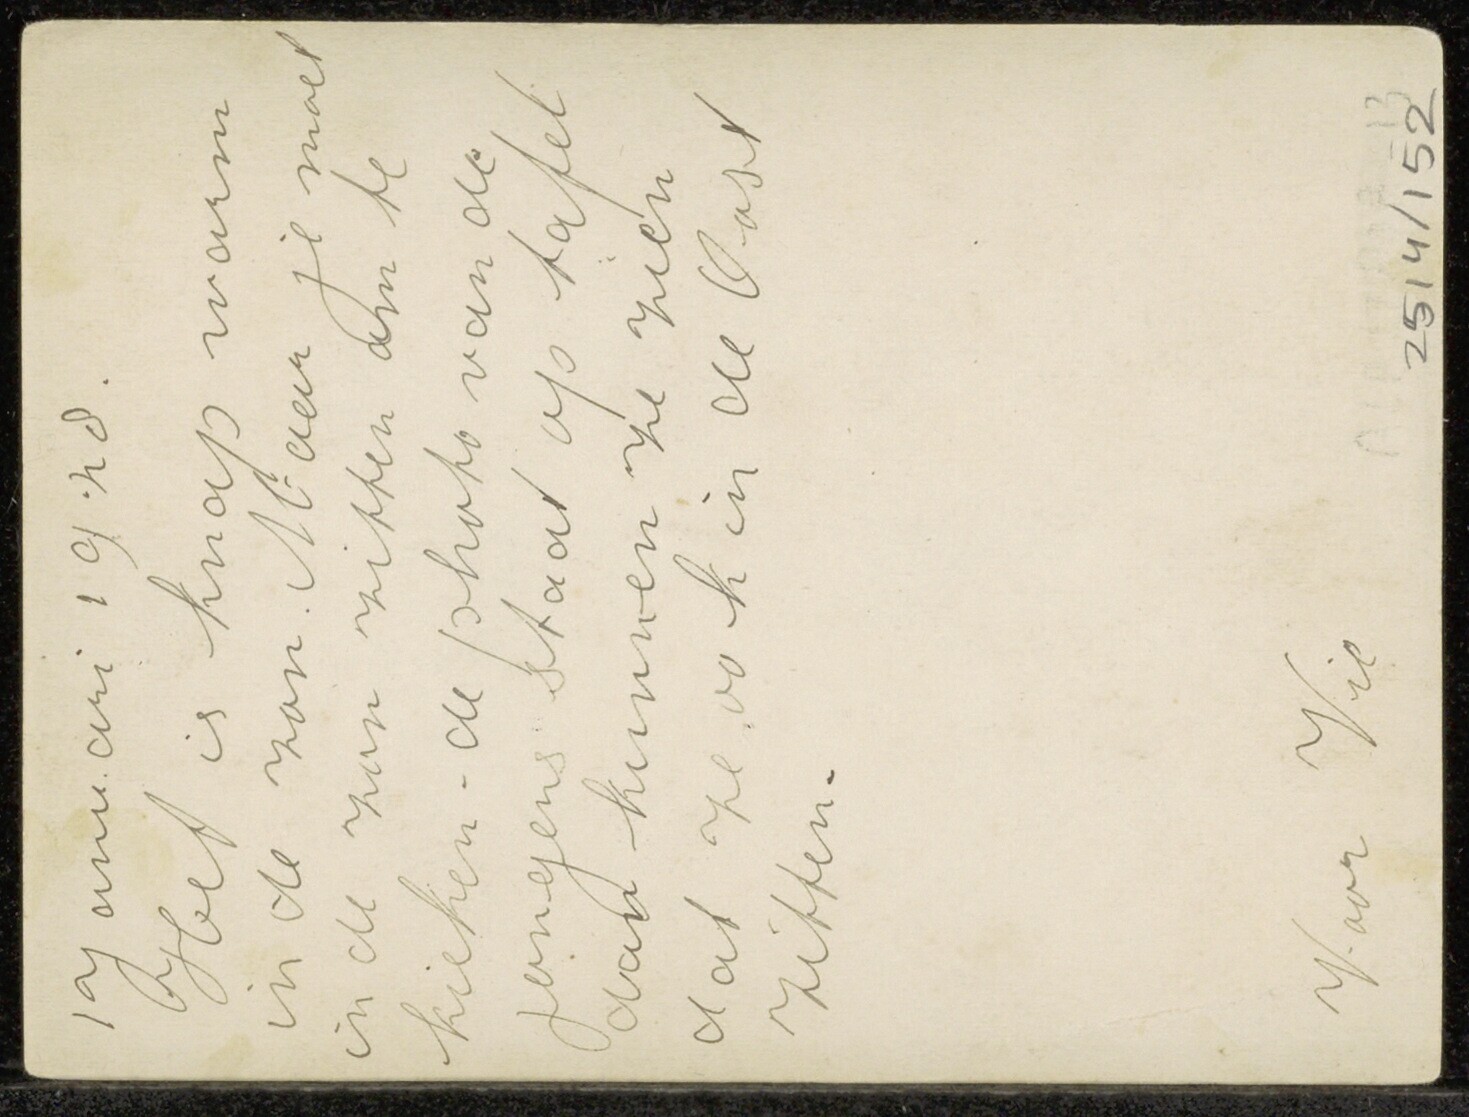 19 Januari 1928.
Het is knap warm
in de zon. Maar je moet
in de zon zitten om te
kieken - de photo van de
jongens staat op tafel
dan kunnen ze zien
dat ze ook in de Oost
zitten.
Voor Vic
2514/152